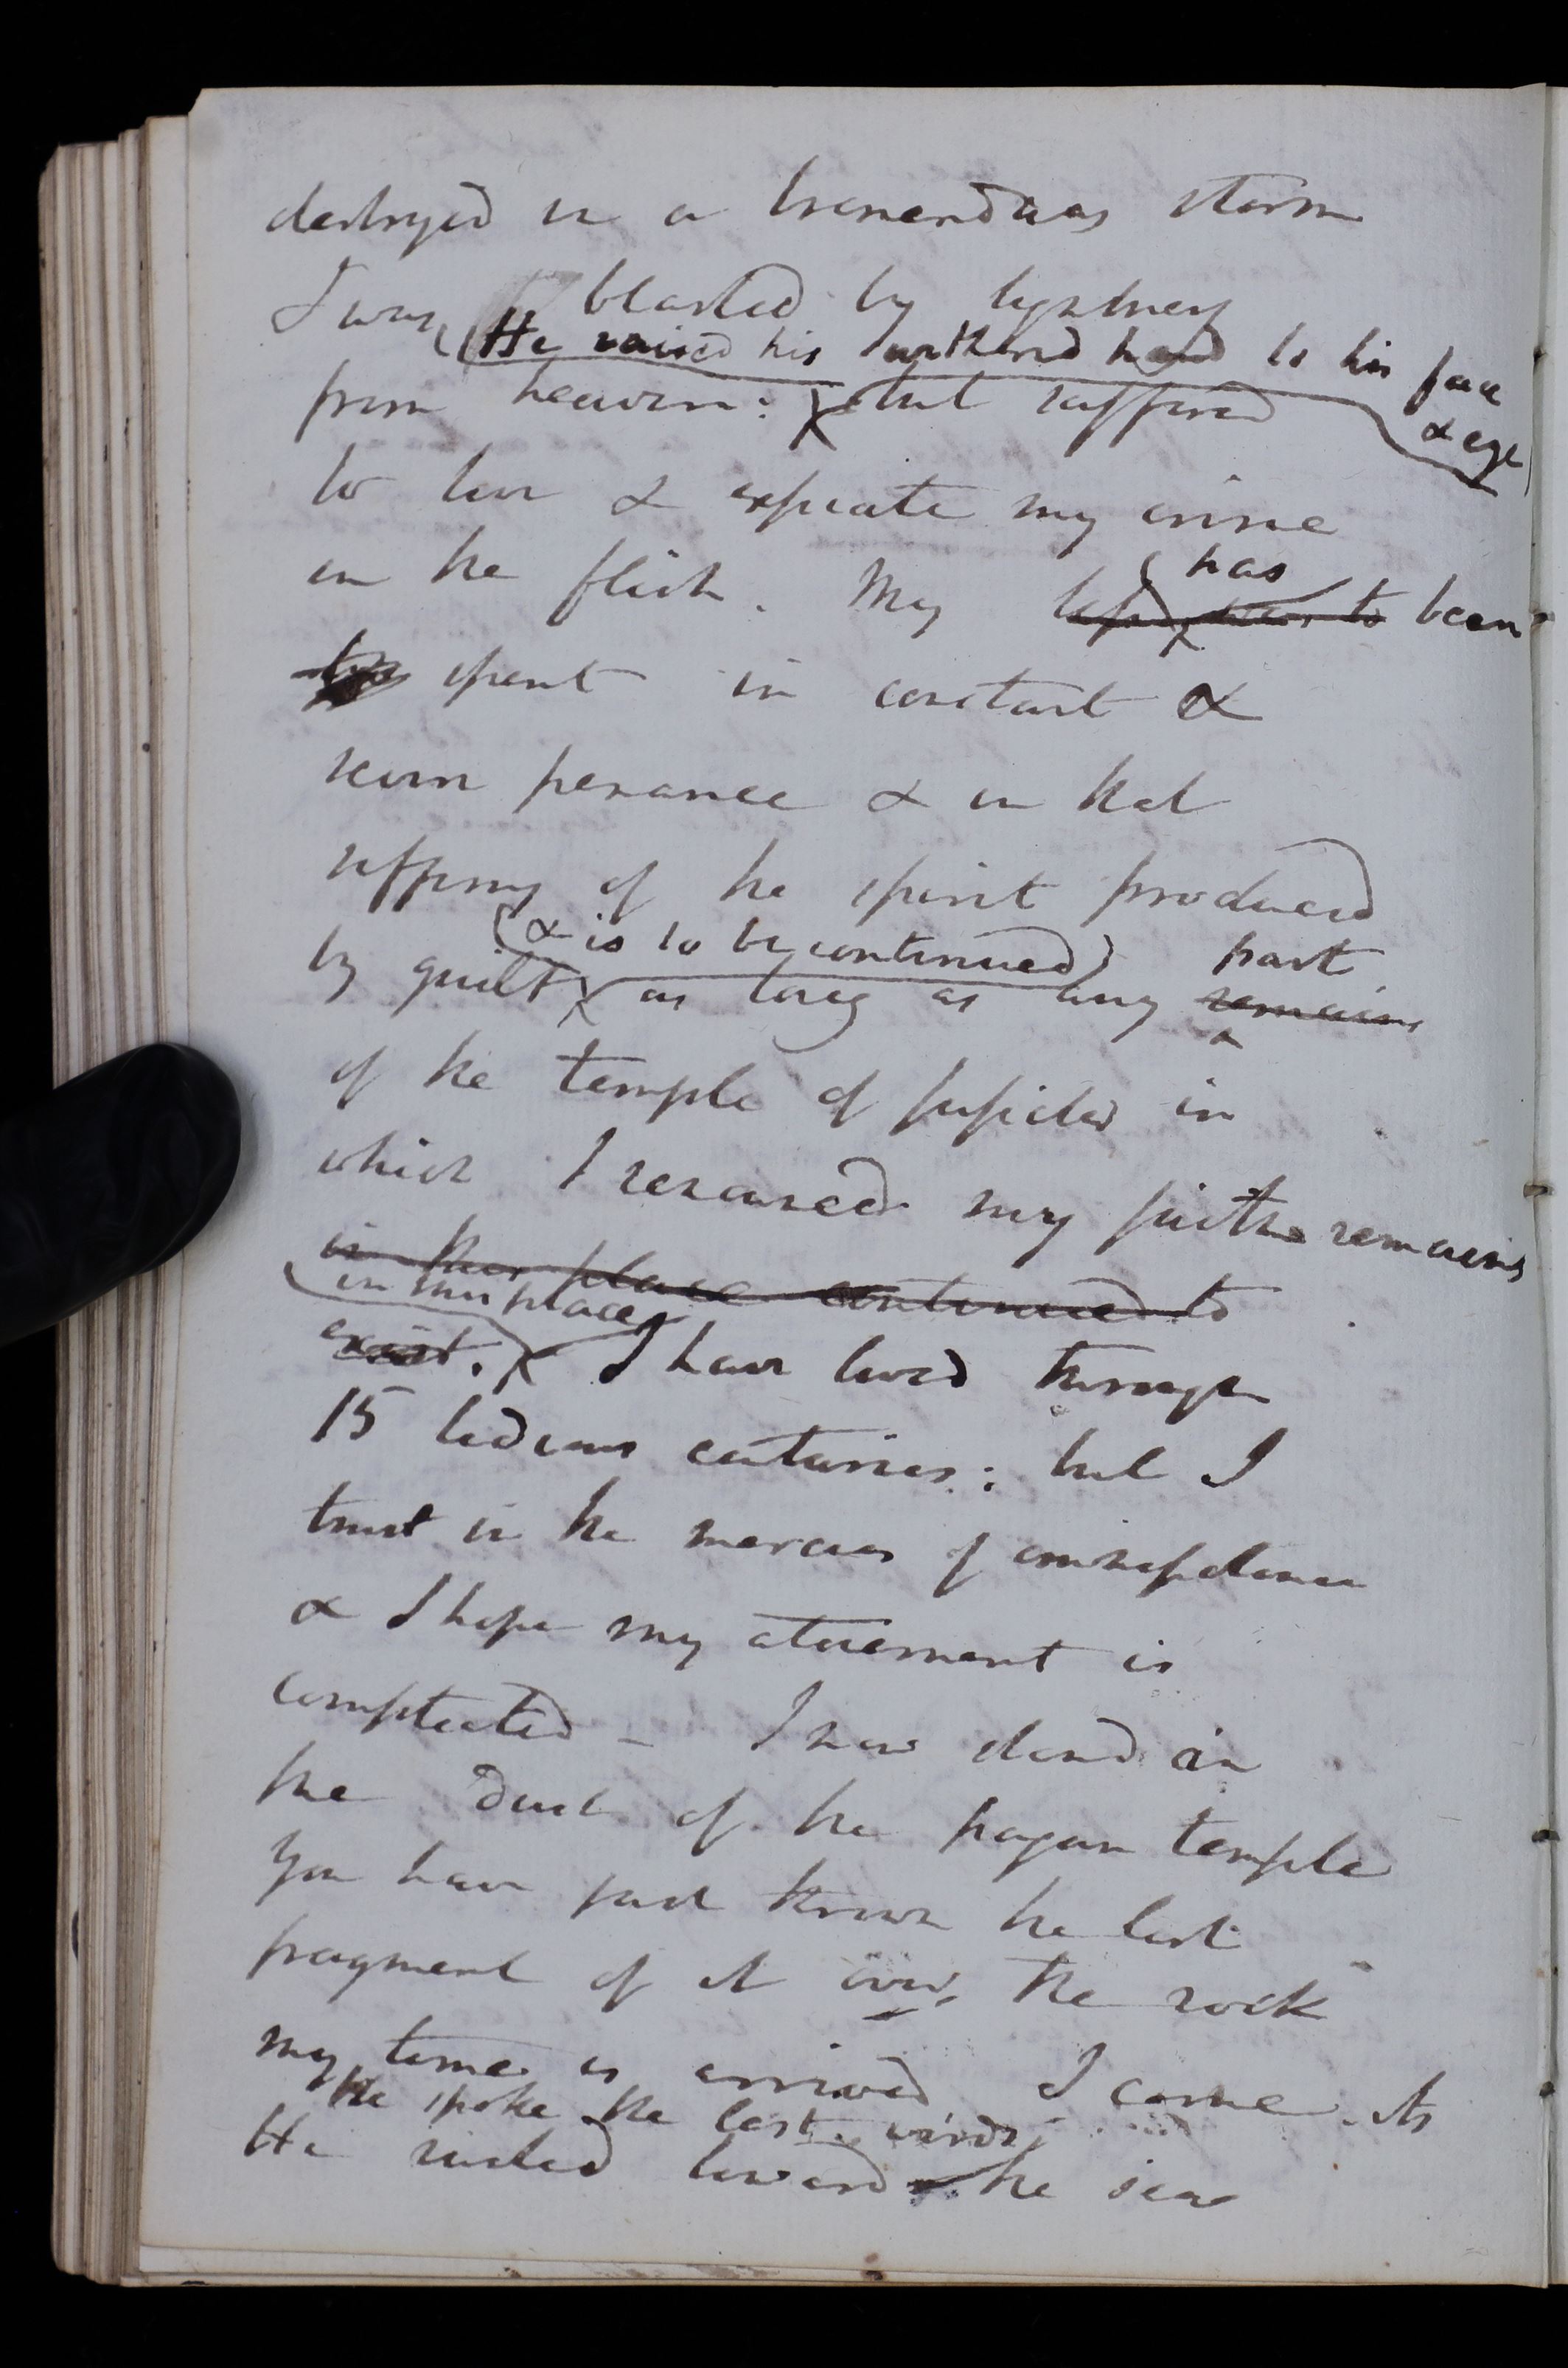 destroyed in a tremendous storm
I was blasted by lightning
He raised his withered hand to his face
& eye
from heaven: but suffered
to live & expiate my crime
in the flesh. My life has been
spent in constant &
severe penance & in that
suffering of the spirit produced
& is to be continued part
by guilt as long as any remains
of the temple of Jupiter in
which I renounced my faith remains
in this place continued to
in this place
exist. I have lived through
15 tedious centuries: but I
trust in the mercies of omnipotence
& I hope my atonement is
completed – I now stand in
the dust of the pagan temple
You have just thrown the last
fragment of it over the rock
my time is arrived I come. As
He spoke the last words,
He rushed towards the sea